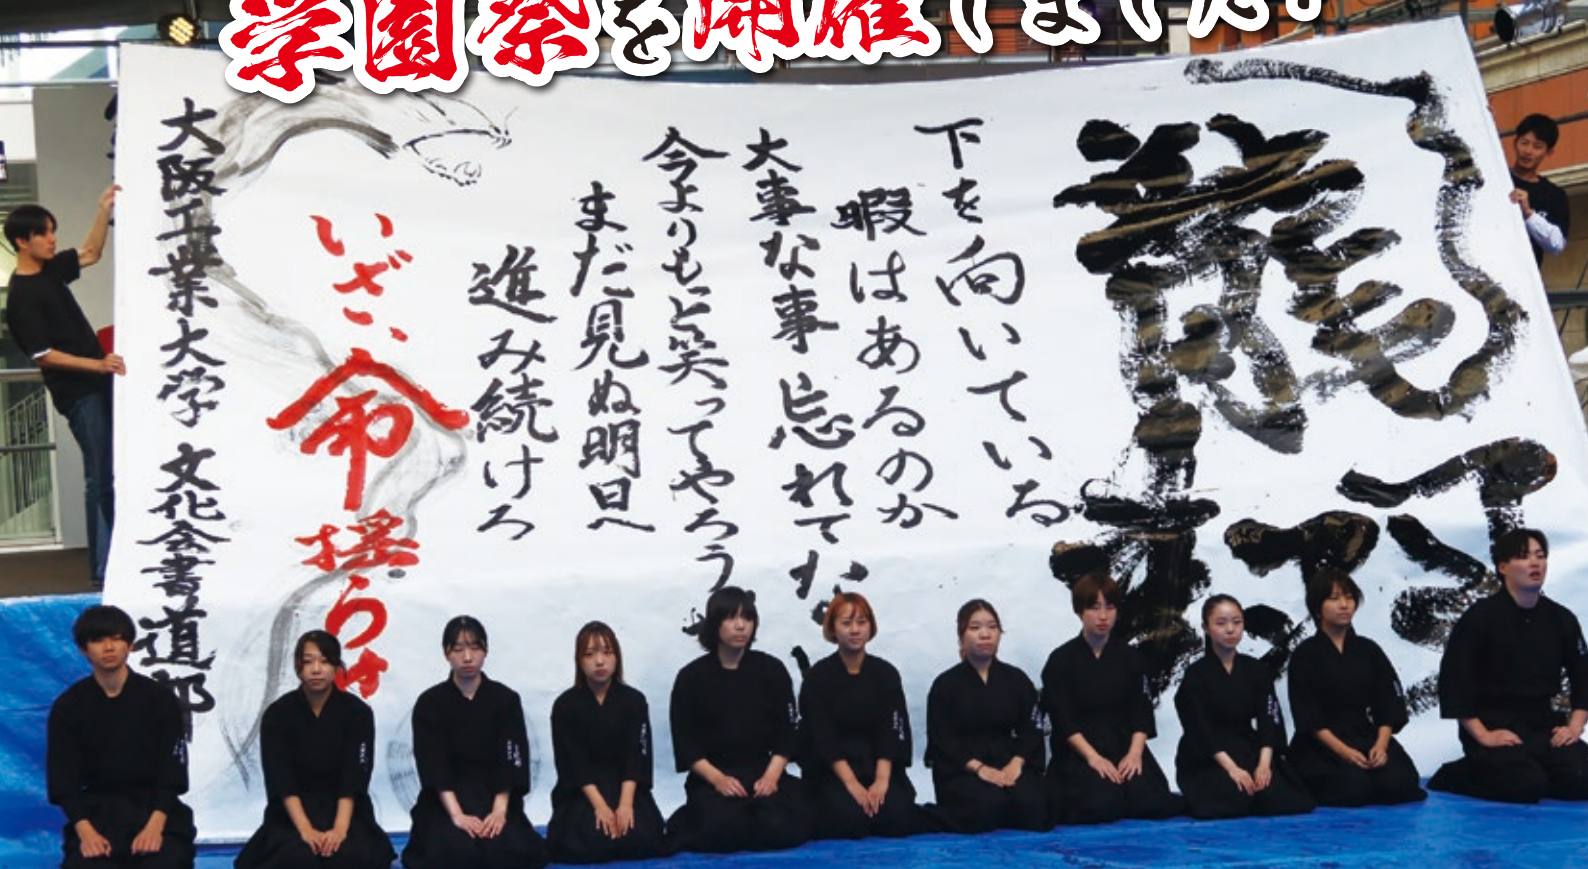 学園祭を開催しました!
下を向いている
暇はあるのか
大事な事忘れてな
今よりもっと笑ってやろう
まだ見ぬ明日へ
進み続けろ
いざ、命揺ら
大阪工業大学 文化会書道部